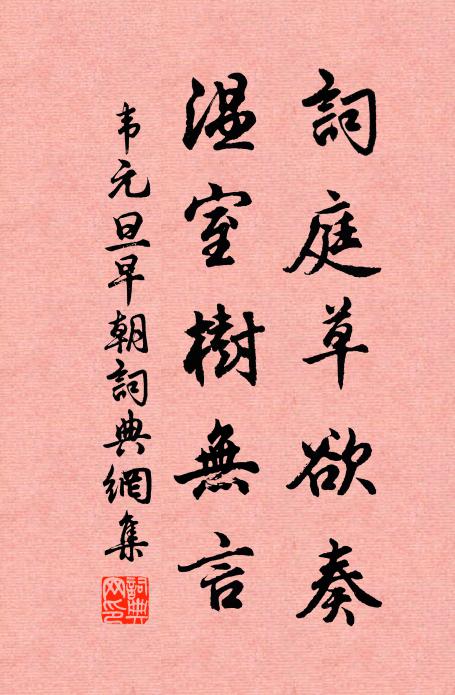 詞庭草欲奏
温室樹無言
韦元旦早朝詞典網集
詞典網印